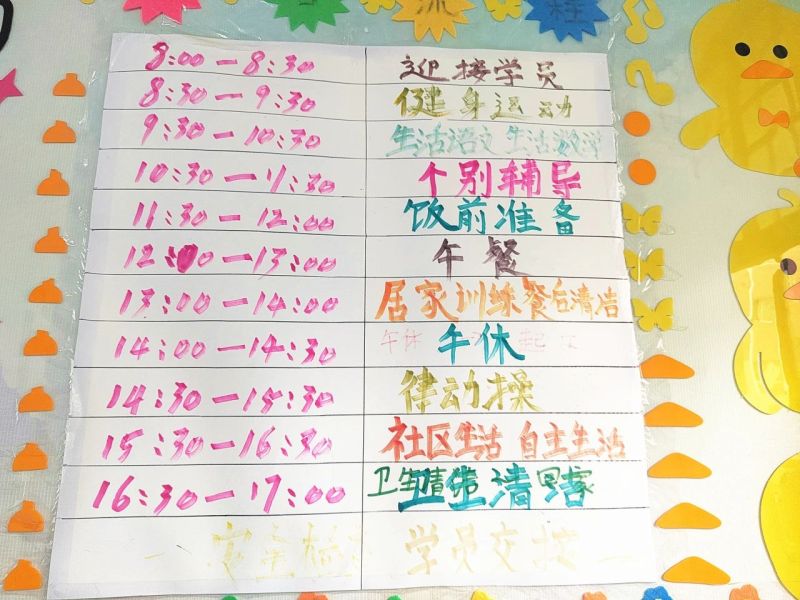 流 程
8:00—8:30 迎接学员
8:30—9:30 健身运动
9:30—10:30 生活语文 生活数学
10:30—11:30 个别辅导
11:30—12:00 饭前准备
12:00—13:00 午餐
13:00—14:00 居家训练餐后清洁
14:00—14:30 午休
14:30—15:30 律动操
15:30—16:30 社区生活 自主生活
16:30—17:00 卫生清洁
学员交接